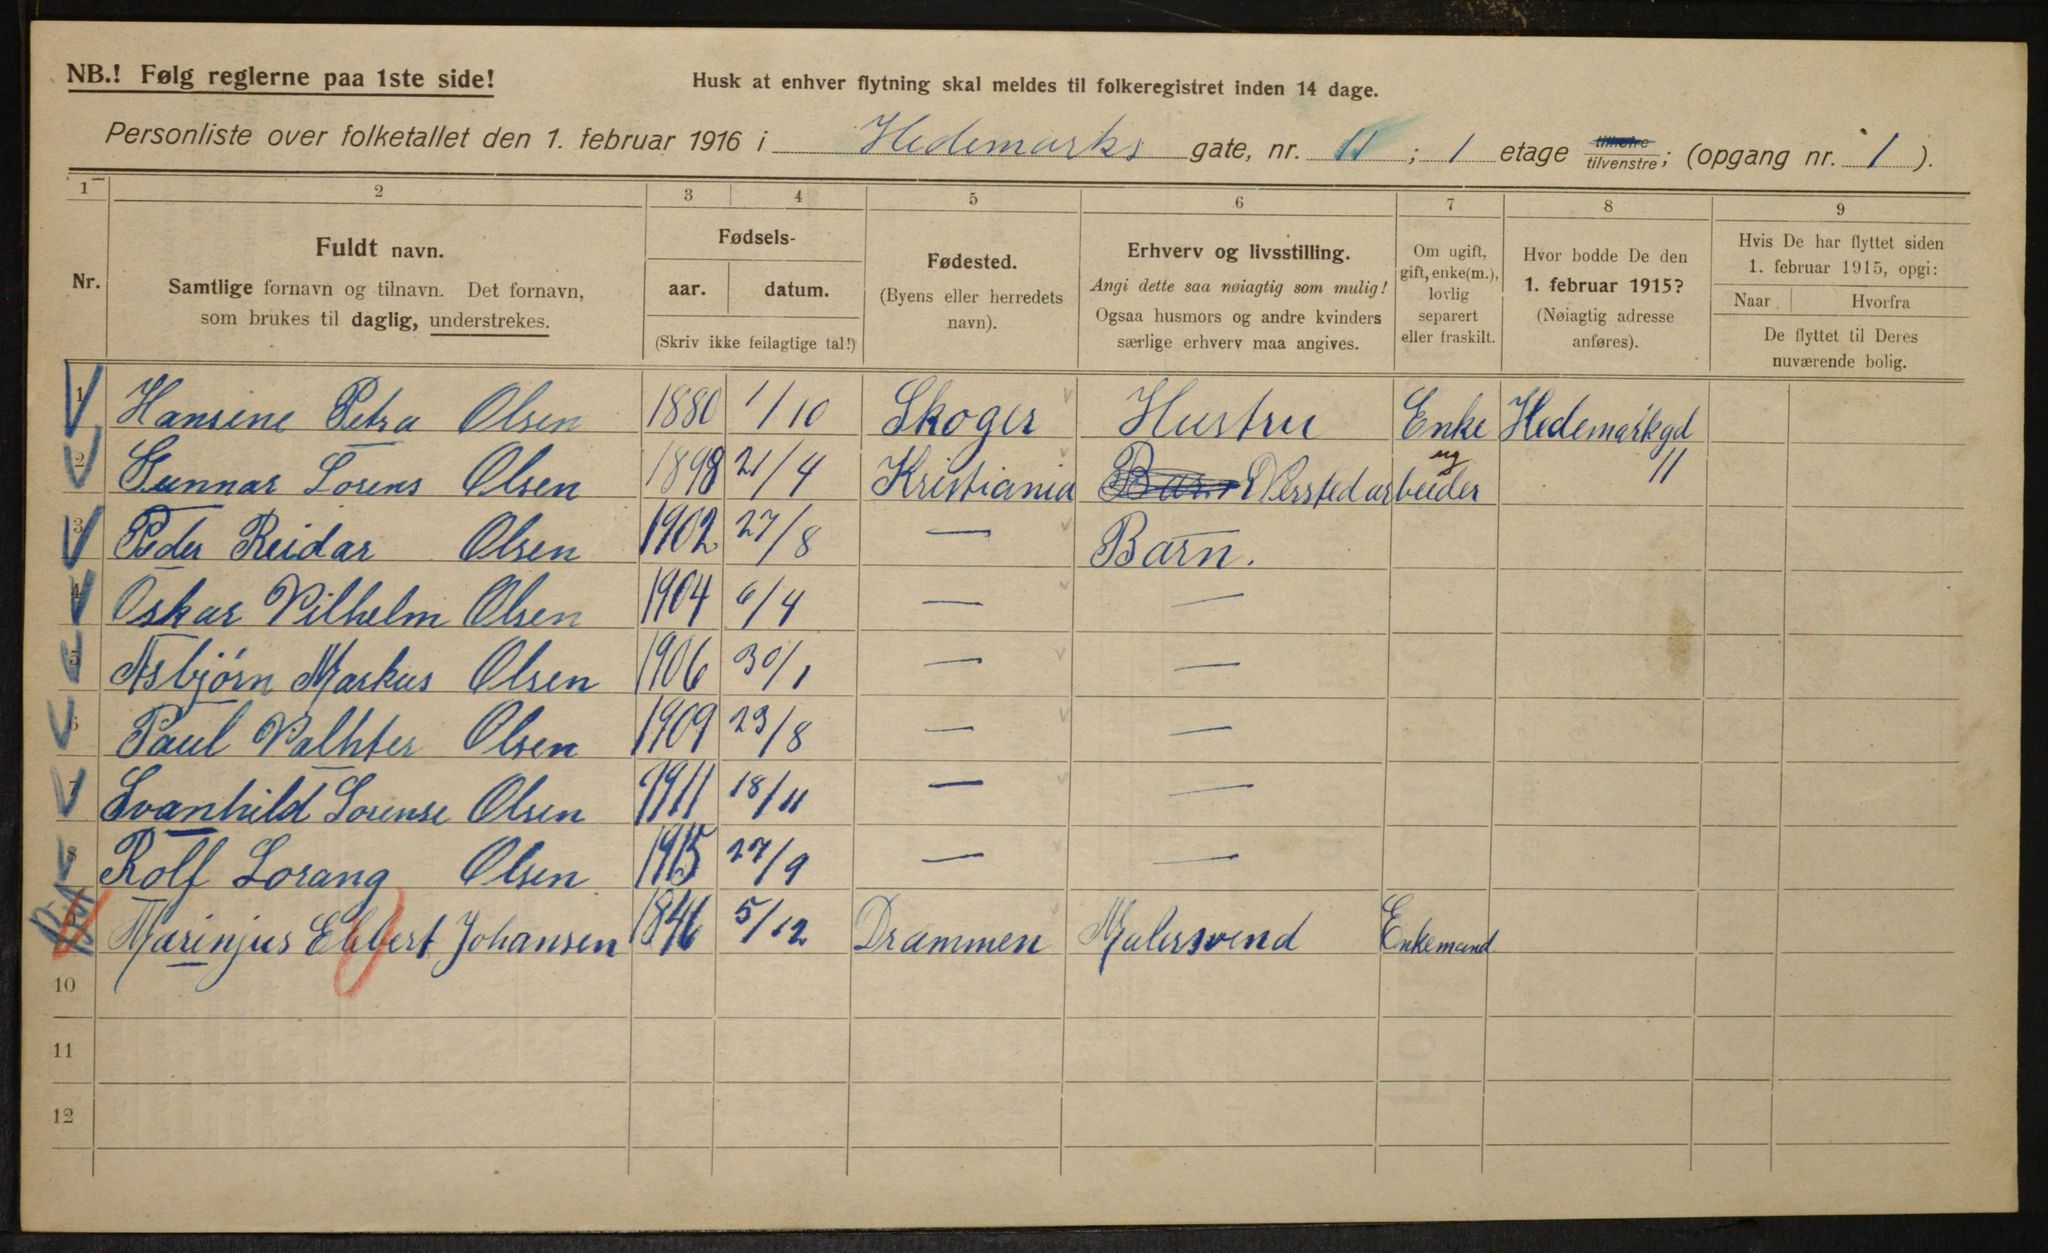 NB.! Følg reglerne paa 1ste side!
Husk at enhver flytning skal meldes til folkeregistret inden 14 dage.
Personliste over folketallet den 1. februar 1916 i Hedemarks gate, nr. 11 ; 1 etage tilhøire / tilvenstre; (opgang nr. 1 ).
1 2 3 4 5 6 7 8 9
Nr.
Fuldt navn.
Samtlige fornavn og tilnavn. Det fornavn,
som brukes til daglig, understrekes.
Fødsels-
aar. datum.
(Skriv ikke feilagtige tal!)
Fødested.
(Byens eller herredets
navn).
Erhverv og livsstilling.
Angi dette saa nøiagtig som mulig!
Ogsaa husmors og andre kvinders
særlige erhverv maa angives.
Om ugift,
gift, enke(m.),
lovlig
separert
eller fraskilt.
Hvor bodde De den
1. februar 1915?
(Nøiagtig adresse
anføres).
Hvis De har flyttet siden
1. februar 1915, opgi:
Naar Hvorfra
De flyttet til Deres
nuværende bolig.
1 Hansine Petra Olsen 1880 1/10 Skoger Hustru Enke Hedemarkgd 11
2 Gunnar Lorens Olsen 1898 21/4 Kristiania Barn Verstedarbeider ug
3 Peder Reidar Olsen 1902 27/8 — Barn.
4 Oskar Vilhelm Olsen 1904 6/4 — —
5 Asbjørn Markus Olsen 1906 30/1 — —
6 Paul Valhter Olsen 1909 23/8 — —
7 Svanhild Lorense Olsen 1911 18/11 — —
8 Rolf Lorang Olsen 1915 27/9 — —
9 Marinjus Ebbert Johansen 1846 5/12 Drammen Malersvend Enkemand
10
11
12